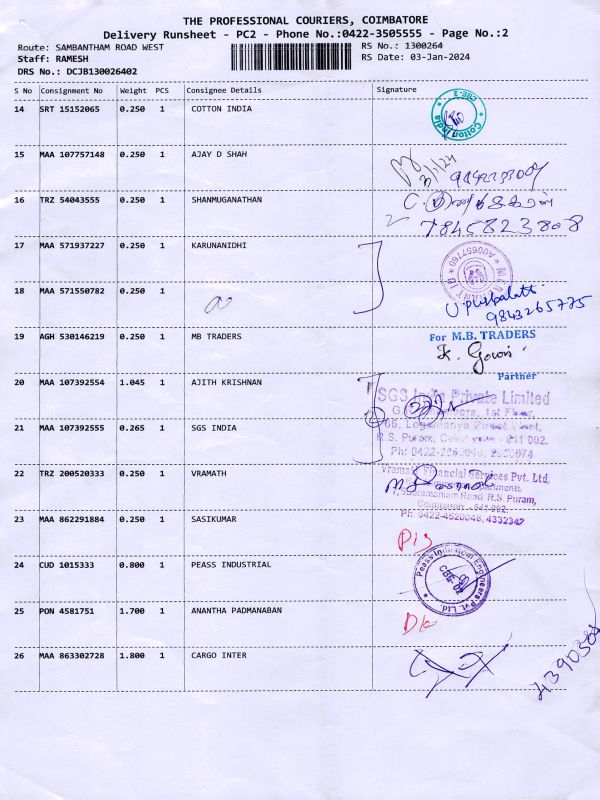 THE PROFESSIONAL COURIERS, COIMBATORE
Delivery Runsheet - PC2 - Phone No.:0422-3505555 - Page No.:2
Route: SAMBANTHAM ROAD WEST
RS No.: 1300264
Staff: RAMESH
RS Date: 03-Jan-2024
DRS No.: DCJB130026402
S No Consignment No Weight PCS Consignee Details Signature
14 SRT 15152065 0.250 1 COTTON INDIA
Cotton India
CBE-2
15 MAA 107757148 0.250 1 AJAY D SHAH
3/1/24
16 TRZ 54043555 0.250 1 SHANMUGANATHAN
7845823808
17 MAA 571937227 0.250 1 KARUNANIDHI
18 MAA 571550782 0.250 1
U. Pushpalatha
9843265775
19 AGH 530146219 0.250 1 MB TRADERS
For M.B. TRADERS
K. Gowri
Partner
20 MAA 107392554 1.045 1 AJITH KRISHNAN
SGS India Private Limited
21 MAA 107392555 0.265 1 SGS INDIA
R.S. Puram,
22 TRZ 200520333 0.250 1 VRAMATH
Vramath Financial Services Pvt. Ltd,
R.S. Puram,
23 MAA 862291884 0.250 1 SASIKUMAR
Ph: 0422-4520048, 4332342
24 CUD 1015333 0.800 1 PEASS INDUSTRIAL
Peass Industrial Engineers Pvt. Ltd.
25 PON 4581751 1.700 1 ANANTHA PADMANABAN
26 MAA 863302728 1.800 1 CARGO INTER